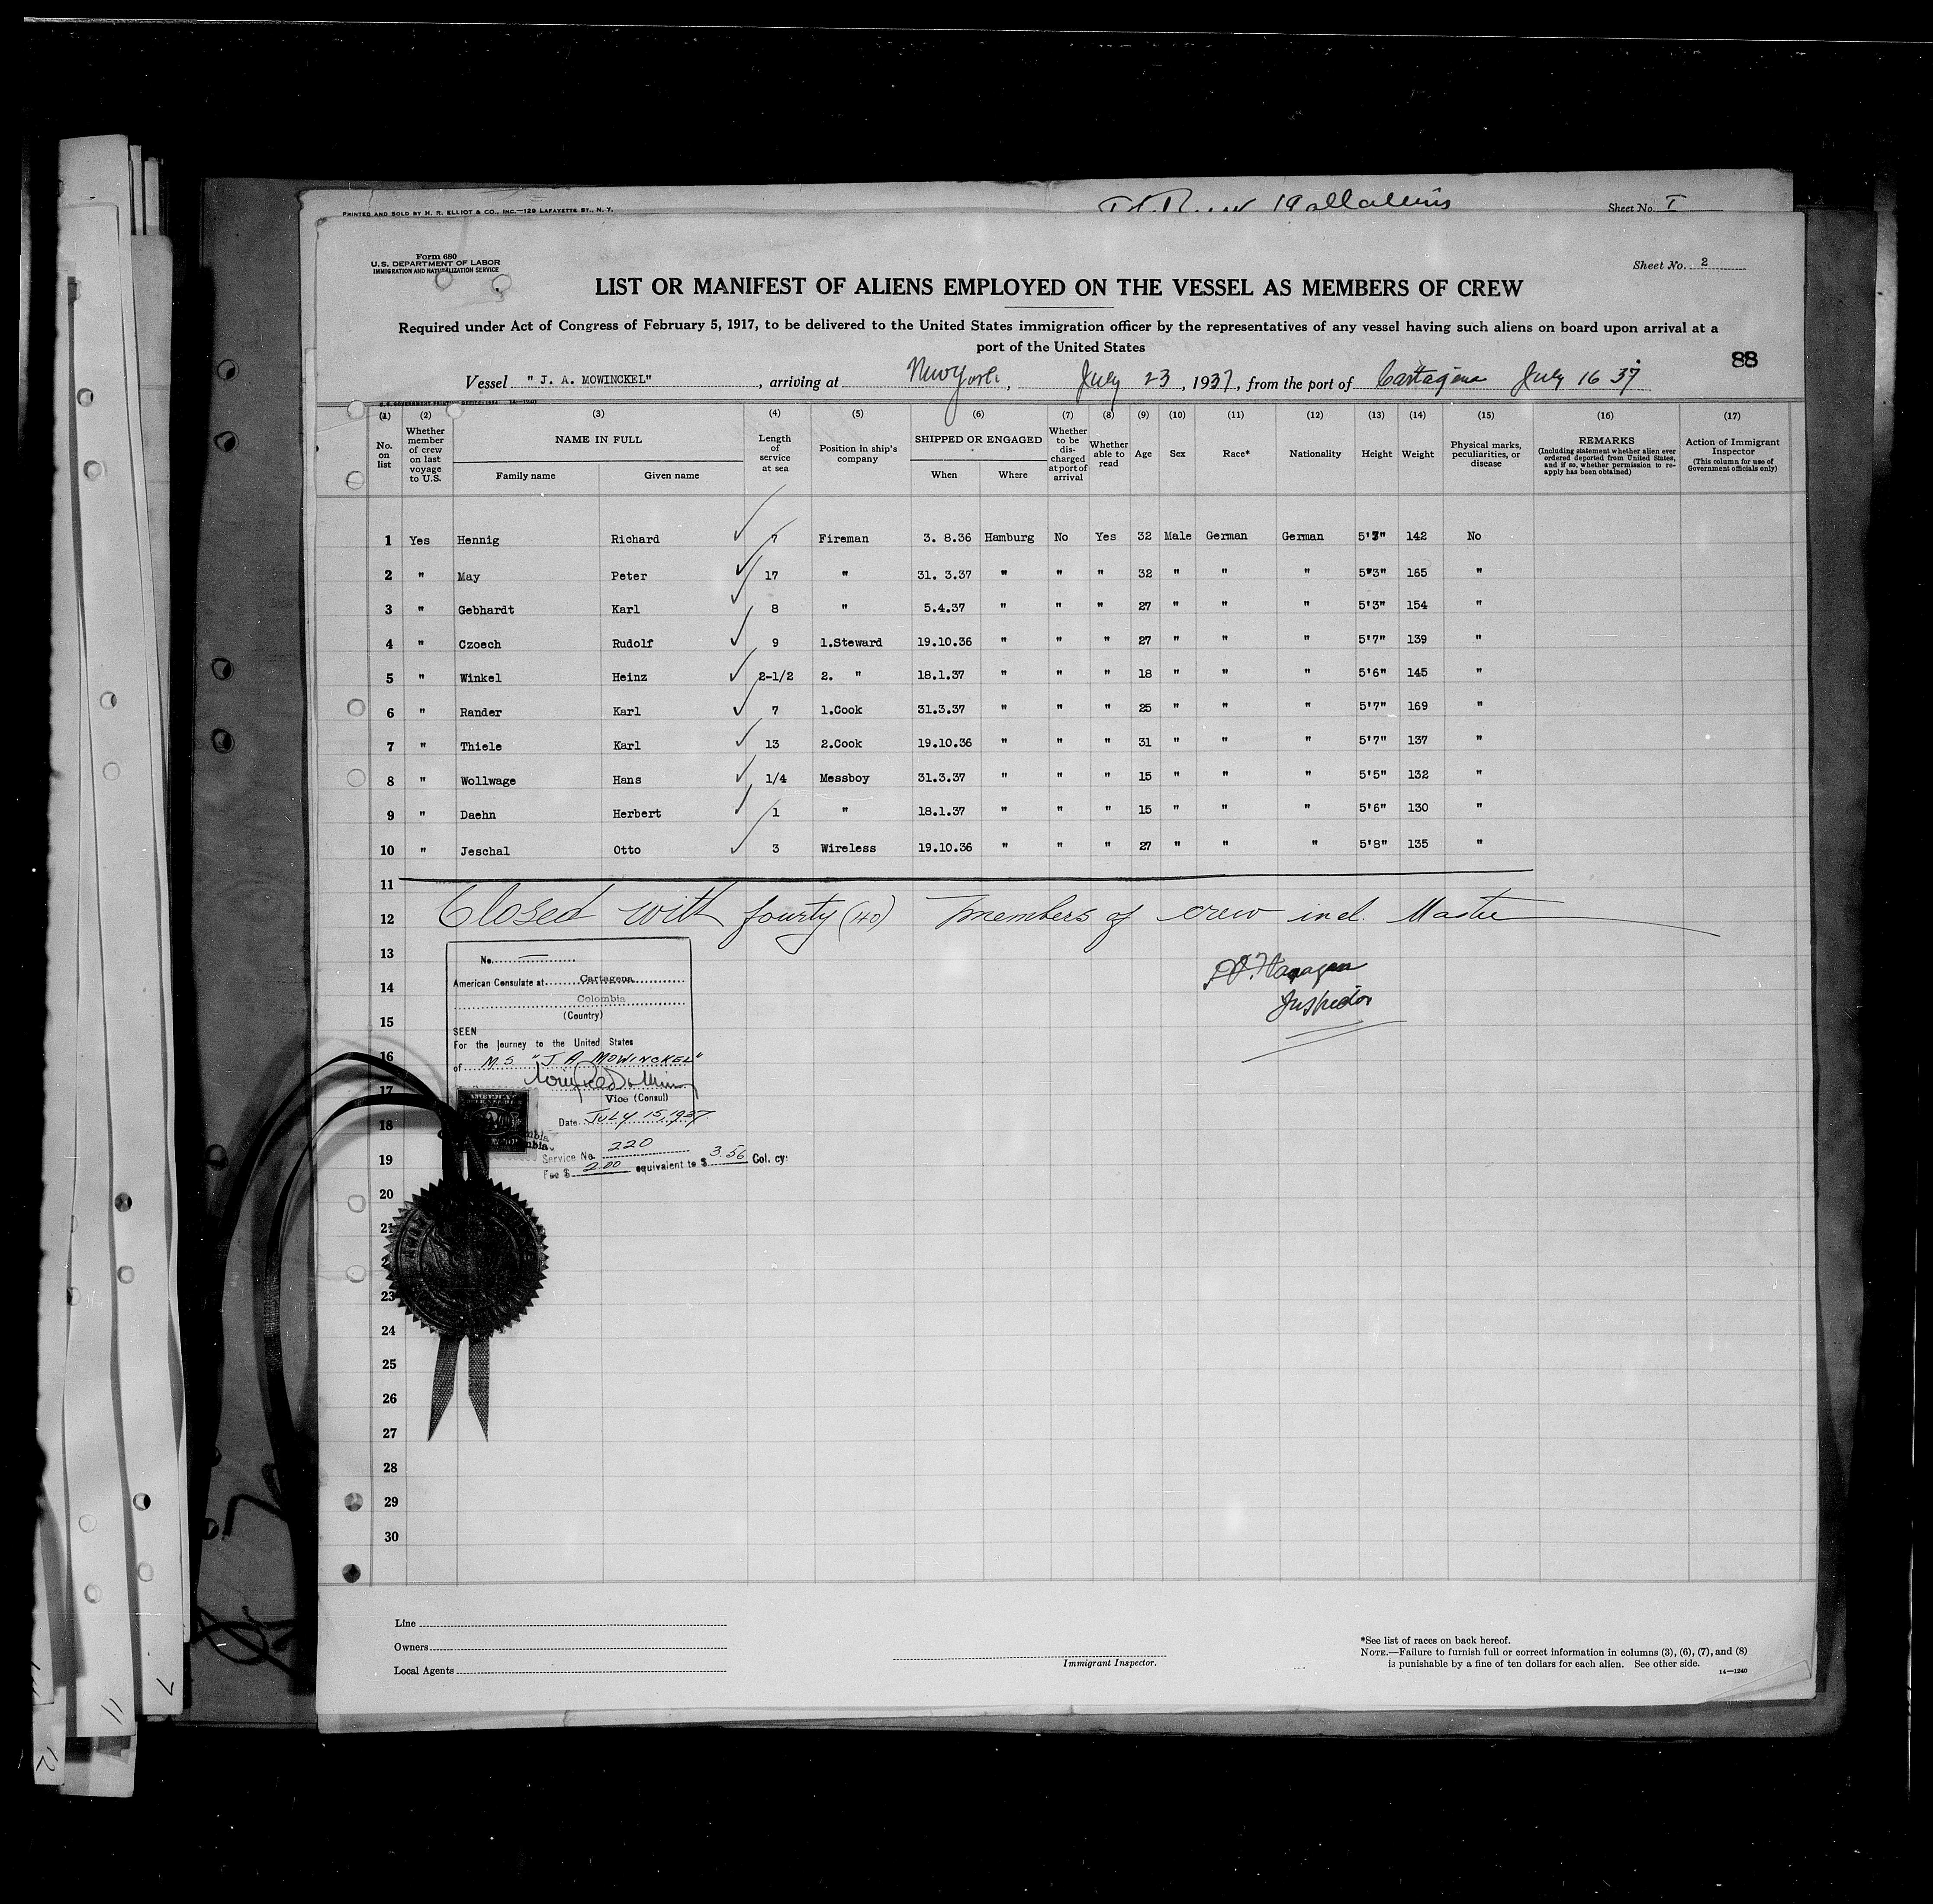 PRINTED AND SOLD BY H. R. ELLIOT & CO., INC.—129 LAFAYETTE ST., N. Y.
Sheet No. I
Form 680
U. S. DEPARTMENT OF LABOR
IMMIGRATION AND NATURALIZATION SERVICE
Sheet No. 2
LIST OR MANIFEST OF ALIENS EMPLOYED ON THE VESSEL AS MEMBERS OF CREW
Required under Act of Congress of February 5, 1917, to be delivered to the United States immigration officer by the representatives of any vessel having such aliens on board upon arrival at a
port of the United States
88
Vessel "J. A. MOWINCKEL", arriving at New York, July 23, 1937, from the port of Cartagena July 16 37
(1) (2) (3) (4) (5) (6) (7) (8) (9) (10) (11) (12) (13) (14) (15) (16) (17)
No. on list Whether member of crew on last voyage to U.S. NAME IN FULL Family name Given name Length of service at sea Position in ship's company SHIPPED OR ENGAGED When Where Whether to be discharged at port of arrival Whether able to read Age Sex Race* Nationality Height Weight Physical marks, peculiarities, or disease REMARKS (Including statement whether alien ever ordered deported from United States, and if so, whether permission to reapply has been obtained) Action of Immigrant Inspector (This column for use of Government officials only)
1 Yes Hennig Richard 7 Fireman 3. 8.36 Hamburg No Yes 32 Male German German 5'3" 142 No
2 " May Peter 17 " 31. 3.37 " " " 32 " " " 5'3" 165 "
3 " Gebhardt Karl 8 " 5.4.37 " " " 27 " " " 5'3" 154 "
4 " Czoech Rudolf 9 1.Steward 19.10.36 " " " 27 " " " 5'7" 139 "
5 " Winkel Heinz 2-1/2 2. " 18.1.37 " " " 18 " " " 5'6" 145 "
6 " Rander Karl 7 1.Cook 31.3.37 " " " 25 " " " 5'7" 169 "
7 " Thiele Karl 13 2.Cook 19.10.36 " " " 31 " " " 5'7" 137 "
8 " Wollwage Hans 1/4 Messboy 31.3.37 " " " 15 " " " 5'5" 132 "
9 " Daehn Herbert 1 " 18.1.37 " " " 15 " " " 5'6" 130 "
10 " Jeschal Otto 3 Wireless 19.10.36 " " " 27 " " " 5'8" 135 "
11
12 Closed with fourty (40) members of crew incl. Master
13
14
15
16
17
18
19
20
21
23
24
25
26
27
28
29
30
No.
American Consulate at Cartagena
Colombia
(Country)
SEEN
For the journey to the United States
of M.S. "J. A. MOWINCKEL"
Vice (Consul)
Date JULY 15, 1937
Service No. 220
Fee $ 2.00 equivalent to $ 3.56 Col. cy.
Inspector
Line
Owners
Local Agents
Immigrant Inspector.
*See list of races on back hereof.
NOTE.—Failure to furnish full or correct information in columns (3), (6), (7), and (8)
is punishable by a fine of ten dollars for each alien. See other side.
14—1240